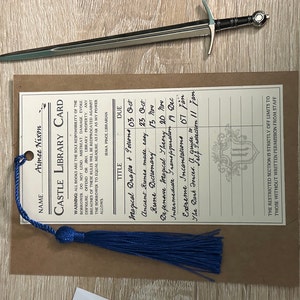 NAME Aimee Nixon
CASTLE LIBRARY CARD
IRMA PINCE LIBRARIAN
TITLE DUE
Magical Drafts & Potions 03 Oct
Ancient Runes made easy 23 Oct
Rune Dictionary 13 Nov
Defensive Magical Theory 20 Nov
Intermediate Transfiguration 19 Dec
Extreme Incantations 07 Jan
The Dark Forces: A guide to
Self Protection 11 Jan
THE RESTRICTED SECTION IS STRICTLY OFF LIMITS TO
THOSE WITHOUT WRITTEN PERMISSION FROM STAFF